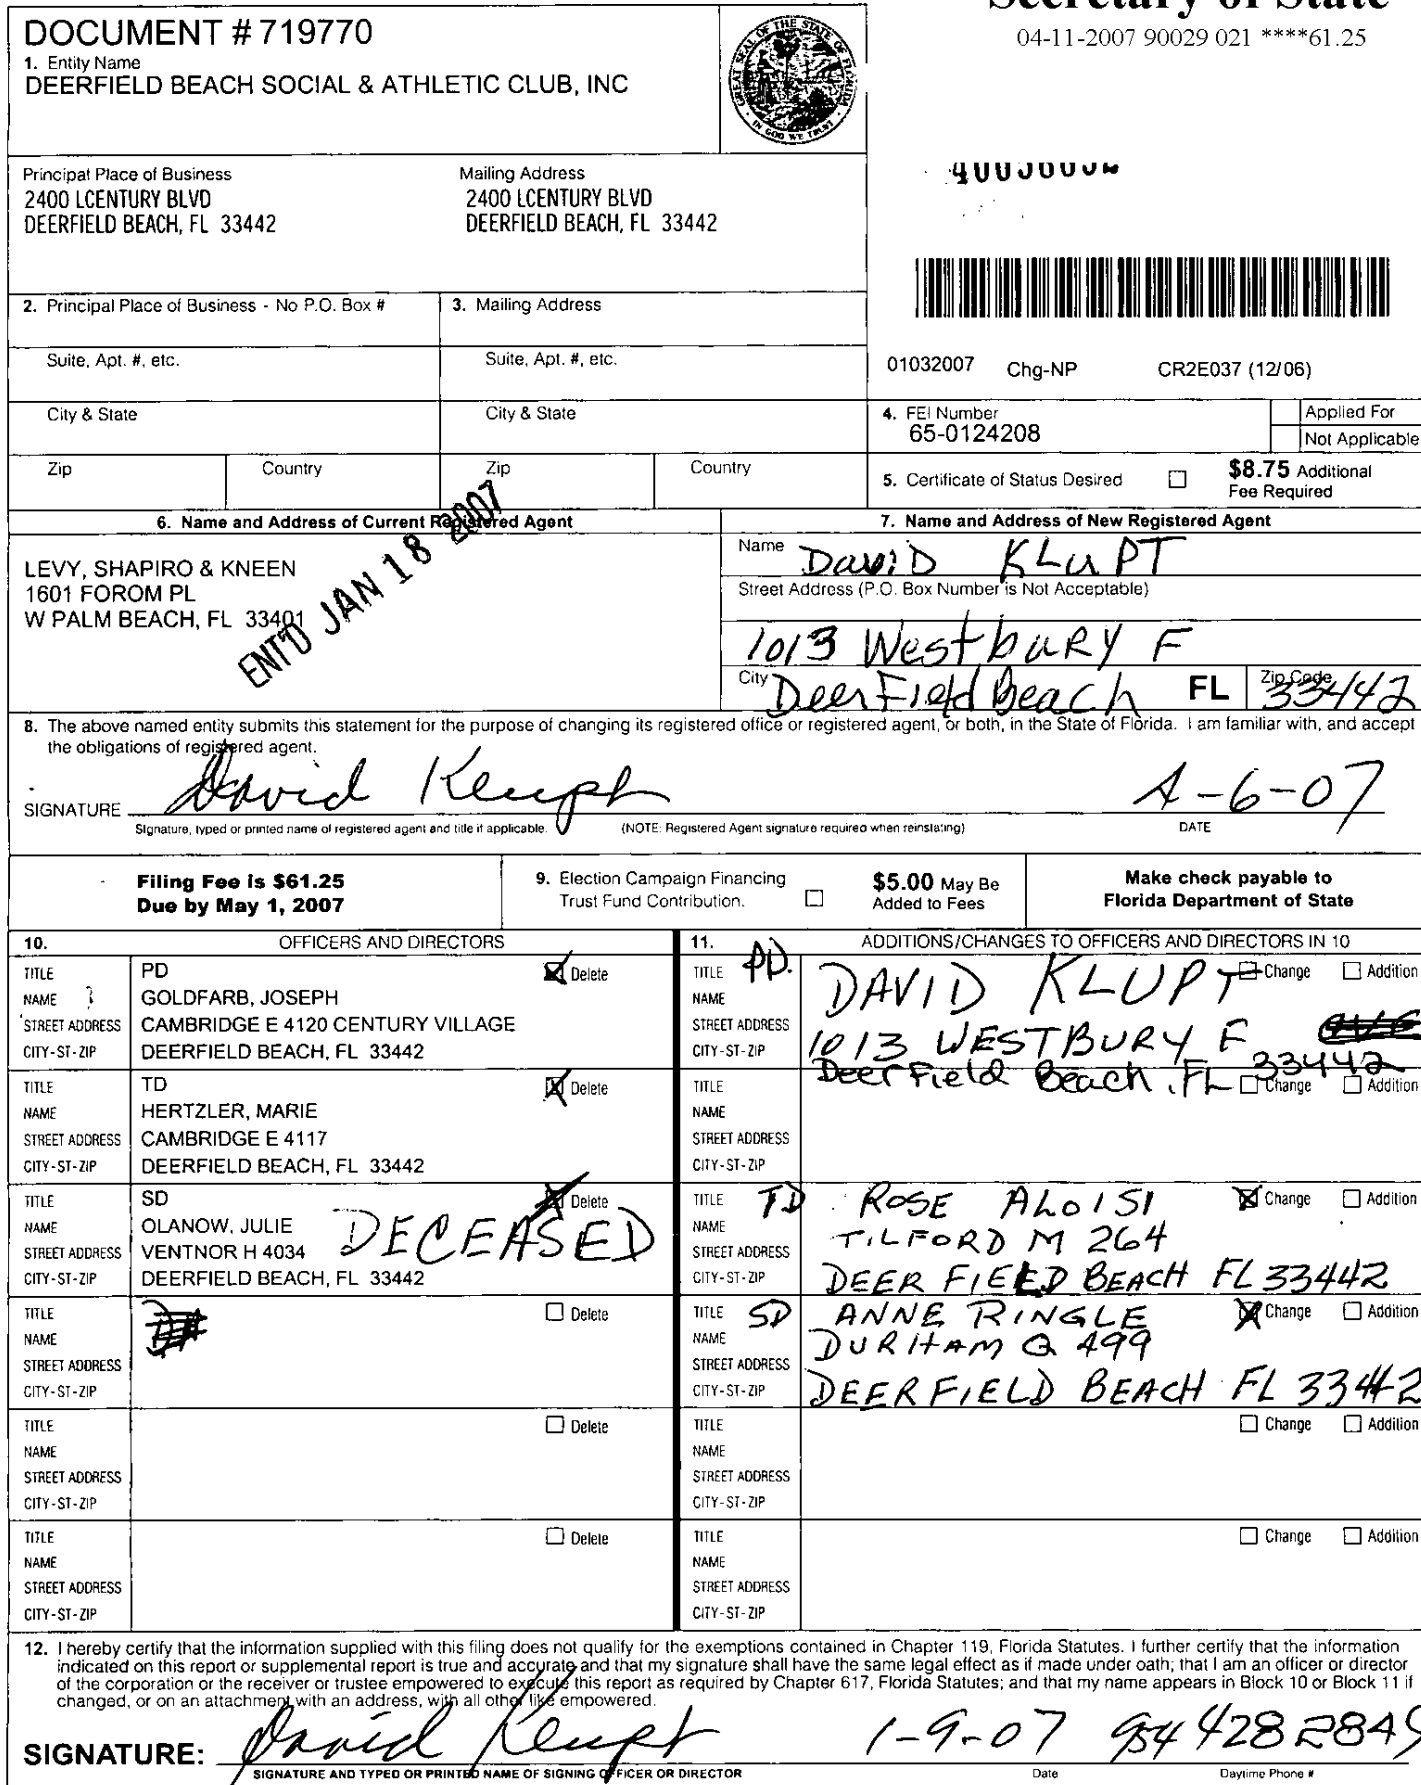 Secretary of State
04-11-2007 90029 021 ****61.25
DOCUMENT # 719770
1. Entity Name
DEERFIELD BEACH SOCIAL & ATHLETIC CLUB, INC
GREAT SEAL OF THE STATE OF FLORIDA
IN GOD WE TRUST
Principal Place of Business
2400 LCENTURY BLVD
DEERFIELD BEACH, FL 33442
Mailing Address
2400 LCENTURY BLVD
DEERFIELD BEACH, FL 33442
2. Principal Place of Business - No P.O. Box #
3. Mailing Address
Suite, Apt. #, etc.
Suite, Apt. #, etc.
01032007 Chg-NP CR2E037 (12/06)
City & State
City & State
4. FEI Number
65-0124208
Applied For
Not Applicable
Zip
Country
Zip
Country
5. Certificate of Status Desired
$8.75 Additional
Fee Required
6. Name and Address of Current Registered Agent
LEVY, SHAPIRO & KNEEN
1601 FOROM PL
W PALM BEACH, FL 33401
ENT'D JAN 18 2007
7. Name and Address of New Registered Agent
Name DaviD KLuPT
Street Address (P.O. Box Number is Not Acceptable)
1013 WestbuRy F
City DeerField Beach FL Zip Code 33442
8. The above named entity submits this statement for the purpose of changing its registered office or registered agent, or both, in the State of Florida. I am familiar with, and accept
the obligations of registered agent.
SIGNATURE David Klupt
Signature, typed or printed name of registered agent and title if applicable.
(NOTE: Registered Agent signature required when reinstating)
DATE
Filing Fee is $61.25
Due by May 1, 2007
9. Election Campaign Financing
Trust Fund Contribution.
$5.00 May Be
Added to Fees
Make check payable to
Florida Department of State
10. OFFICERS AND DIRECTORS
TITLE PD Delete
NAME GOLDFARB, JOSEPH
STREET ADDRESS CAMBRIDGE E 4120 CENTURY VILLAGE
CITY-ST-ZIP DEERFIELD BEACH, FL 33442
TITLE TD Delete
NAME HERTZLER, MARIE
STREET ADDRESS CAMBRIDGE E 4117
CITY-ST-ZIP DEERFIELD BEACH, FL 33442
TITLE SD Delete
NAME OLANOW, JULIE
DECEASED
STREET ADDRESS VENTNOR H 4034
CITY-ST-ZIP DEERFIELD BEACH, FL 33442
TITLE Delete
NAME
STREET ADDRESS
CITY-ST-ZIP
TITLE Delete
NAME
STREET ADDRESS
CITY-ST-ZIP
TITLE Delete
NAME
STREET ADDRESS
CITY-ST-ZIP
11. ADDITIONS/CHANGES TO OFFICERS AND DIRECTORS IN 10
TITLE PD. Change Addition
NAME DAVID KLUPT
STREET ADDRESS 1013 WESTBURY F
CITY-ST-ZIP DeerField Beach, FL 33442
TITLE Change Addition
NAME
STREET ADDRESS
CITY-ST-ZIP
TITLE TD ROSE ALOISI Change Addition
NAME
STREET ADDRESS TILFORD M 264
CITY-ST-ZIP DEER FIELD BEACH FL 33442
TITLE SD ANNE RINGLE Change Addition
NAME DURHAM Q 499
STREET ADDRESS
CITY-ST-ZIP DEERFIELD BEACH FL 33442
TITLE Change Addition
NAME
STREET ADDRESS
CITY-ST-ZIP
TITLE Change Addition
NAME
STREET ADDRESS
CITY-ST-ZIP
12. I hereby certify that the information supplied with this filing does not qualify for the exemptions contained in Chapter 119, Florida Statutes. I further certify that the information
indicated on this report or supplemental report is true and accurate and that my signature shall have the same legal effect as if made under oath; that I am an officer or director
of the corporation or the receiver or trustee empowered to execute this report as required by Chapter 617, Florida Statutes; and that my name appears in Block 10 or Block 11 if
changed, or on an attachment with an address, with all other like empowered.
SIGNATURE: David Klupt 1-9-07 954 428 2849
SIGNATURE AND TYPED OR PRINTED NAME OF SIGNING OFFICER OR DIRECTOR
Date
Daytime Phone #